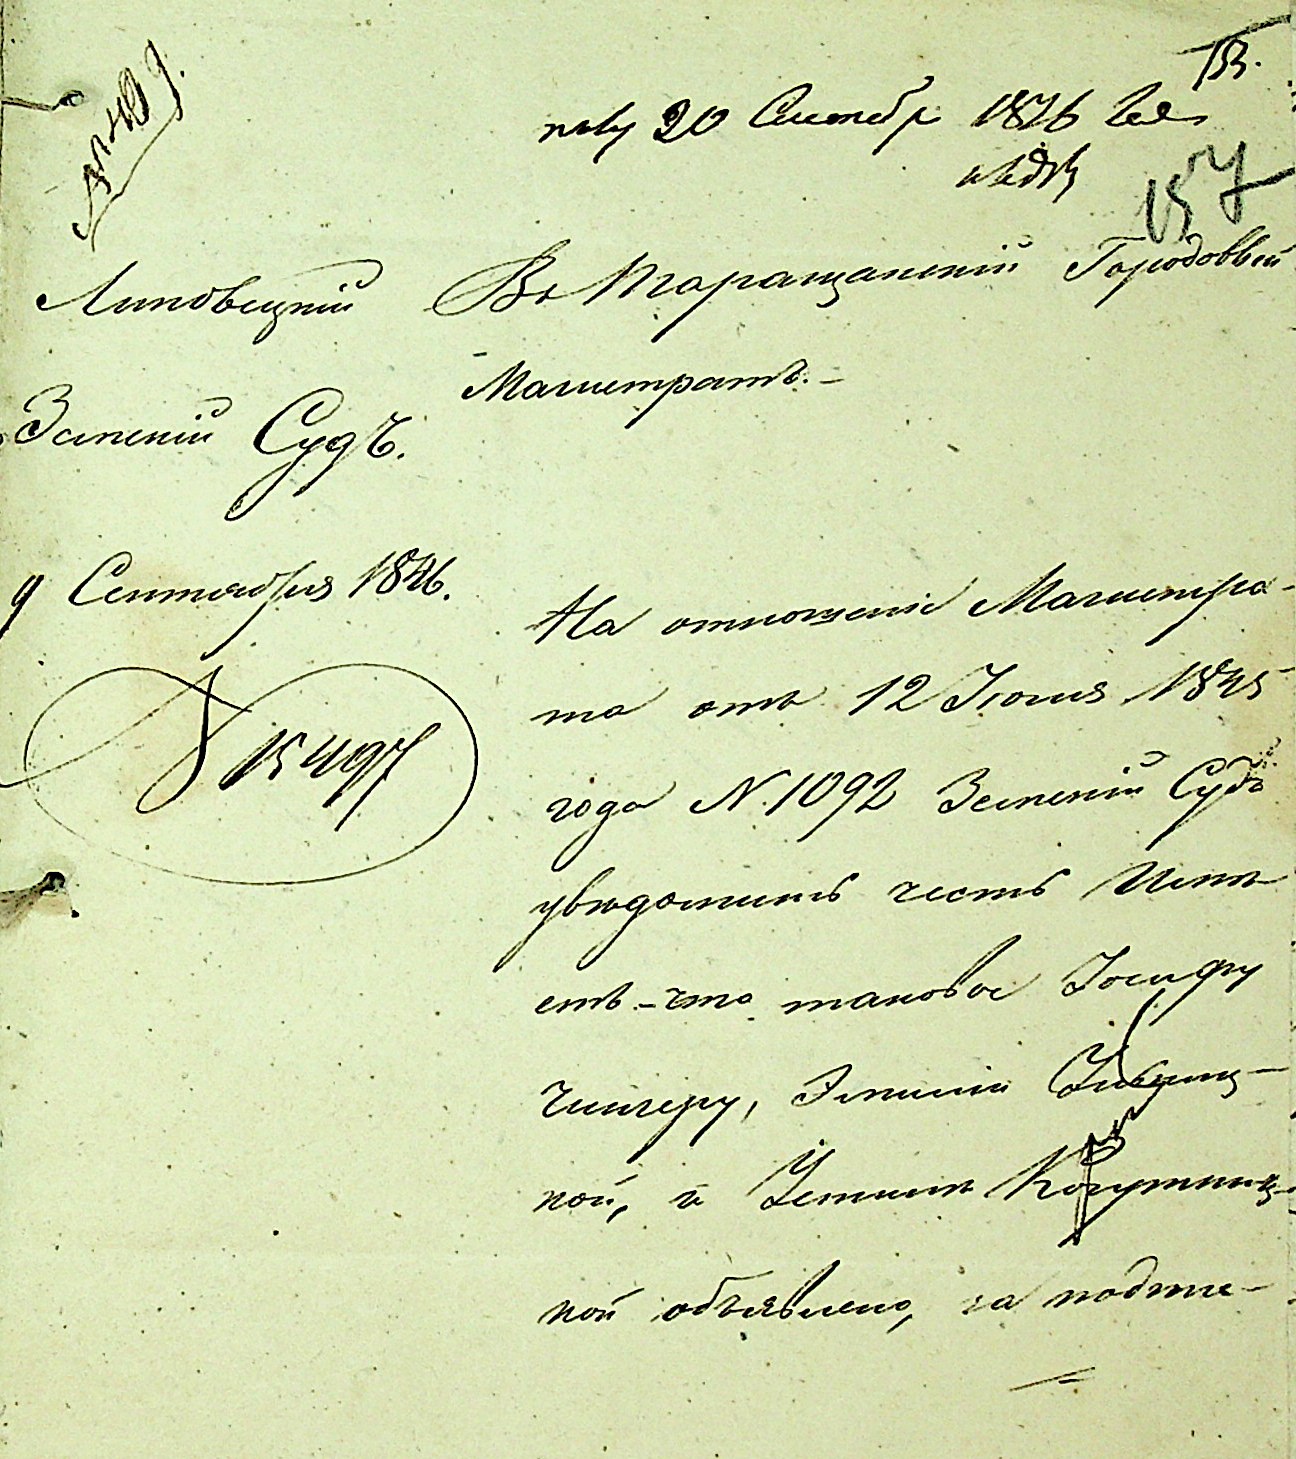 20 Сентебр 1846
157
Липовецкій
Земскій Судъ.
9 Сентября 1846.
№ 15497
Въ Таращанскій Городовый
Магистратъ.-
На отношеніе Магистра-
та отъ 12 Іюня 1845
года N. 1092 Земскій Судъ
увѣдомить честь Имѣ-
етъ.-что таковое Іосифу
Чингеру,
кой, и Устинѣ
кой объявлено, за подпи-